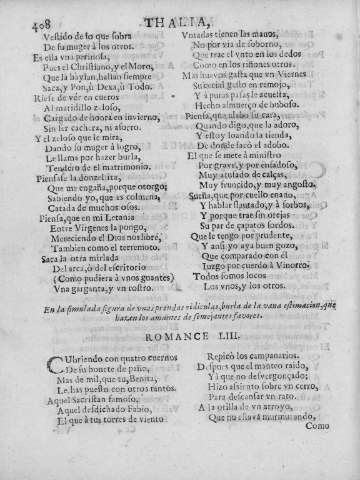 408 THALIA,
Vestido de lo que sobra
De su muger à los otros.
Es ella vna perinola,
Pues el Christiano, y el Moro,
Que la baylan, hallan siempre
Saca, y Pon, ù Dexa, ù Todo.
Riese de vèr en cueros
Al maridillo zeloso,
Cargado de honra en invierno,
Sin luz cachera, ni ahorro.
Y el zeloso que le mira,
Dando su muger à logro,
Le llama por hazer burla,
Tendero de el matrimonio.
Piensase la donzellita,
Que me engaña, porque otorgo;
Sabiendo yo, que es coluna,
Catada de muchos osos.
Piensa, que en mi Letania
Entre Virgenes la pongo,
Mereciendo el Dios nos libre,
Tambien como el terremoto.
Saca la otra mirlada
Del arca, ò del escritorio
(Como pudiera à vnos guantes)
Vna garganta, y vn rostro.
Vntadas tienen las manos,
No por via de soborno,
Que trae el vnto en los dedos
Como en los riñones otros.
Mas huevos gasta que vn Viernes
Su facial gullo en remojo,
Y à puras passas se azeita,
Hecho almuerço de buboso.
Piensa, que alabo su cara,
Quando digo, que la adoro,
Y estoy loando la tienda,
De donde sacò el adobo.
El que se mete à ministro
Por grave, y por enfadoso,
Muy atusado de calças,
Muy fruncido, y muy angosto.
Sueña, que por cuello enano,
Y hablar flautado, y à sorbos,
Y porque trae sin orejas
Su par de çapatos sordos.
Que le tengo por prudente,
Y ansi yo aya buen gozo,
Que comparado con èl
Iuzgo por cuerdo à Vinorro.
Todos somos locos
Los vnos, y los otros.
En la simulada figura de vnas prendas ridiculas, burla de la vana estimacion, que
hazen los amantes de semejantes favores.
ROMANCE LIII.
CUbriendo con quatro cuernos
De su bonete de paño,
Mas de mil, que tu, Benita,
Le has puesto con otros tantos.
Aquel Sacristan famoso,
Aquel desdichado Fabio,
El que à tus torres de viento
Repicò los campanarios.
Despues que el manteo raìdo,
Yà que no desvergonçado;
Hizo assiento sobre vn cerro,
Para descansar vn rato.
A la orilla de vn arroyo,
Que no estuvà murmurando,
Como